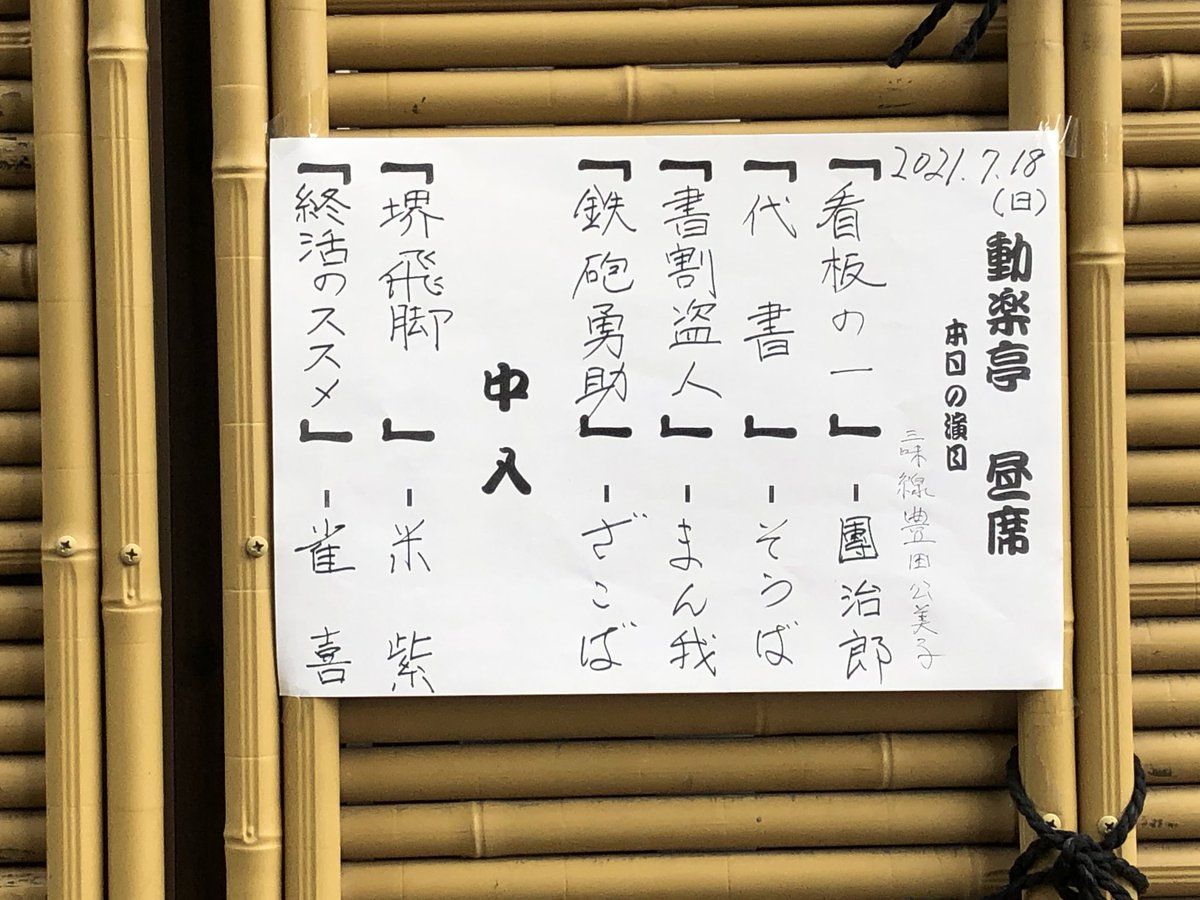 2021.7.18
(日)
動楽亭 昼席
本日の演目
三味線 豊田公美子
「看板の一」 - 團治郎
「代書」 - そうば
「書割盗人」 - まん我
「鉄砲勇助」 - ざこば
中入
「堺飛脚」 - 米紫
「終活のススメ」 - 雀喜